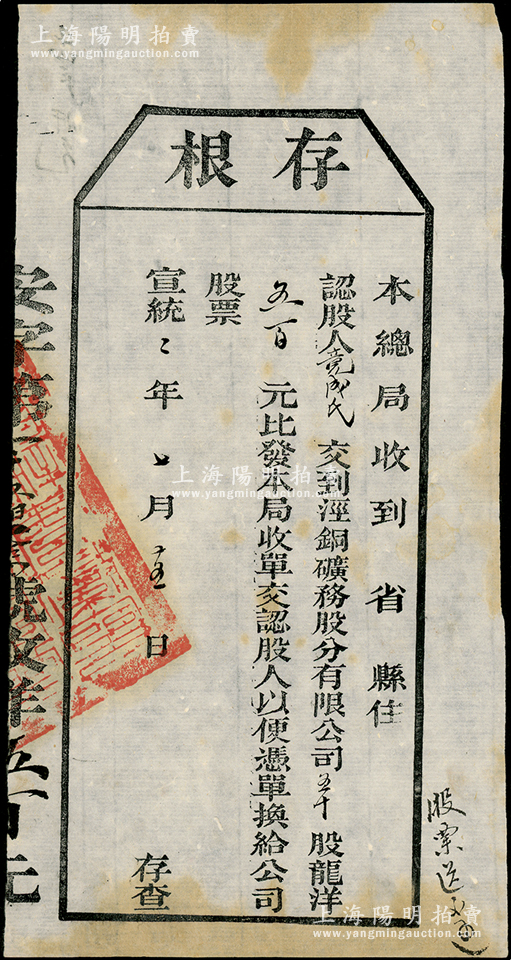 上海陽明拍賣
www.yangmingauction.com
存根
本總局收到 省 縣住
認股人竟成氏 交到涇銅礦務股分有限公司五十股龍洋
五百 元比發本局收單交認股人以便憑單換給公司
股票
宣統二年七月十五日
存查
安字第 號收洋五百元
股票送
上海陽明拍賣
www.yangmingauction.com
上海陽明拍賣
www.yangmingauction.com